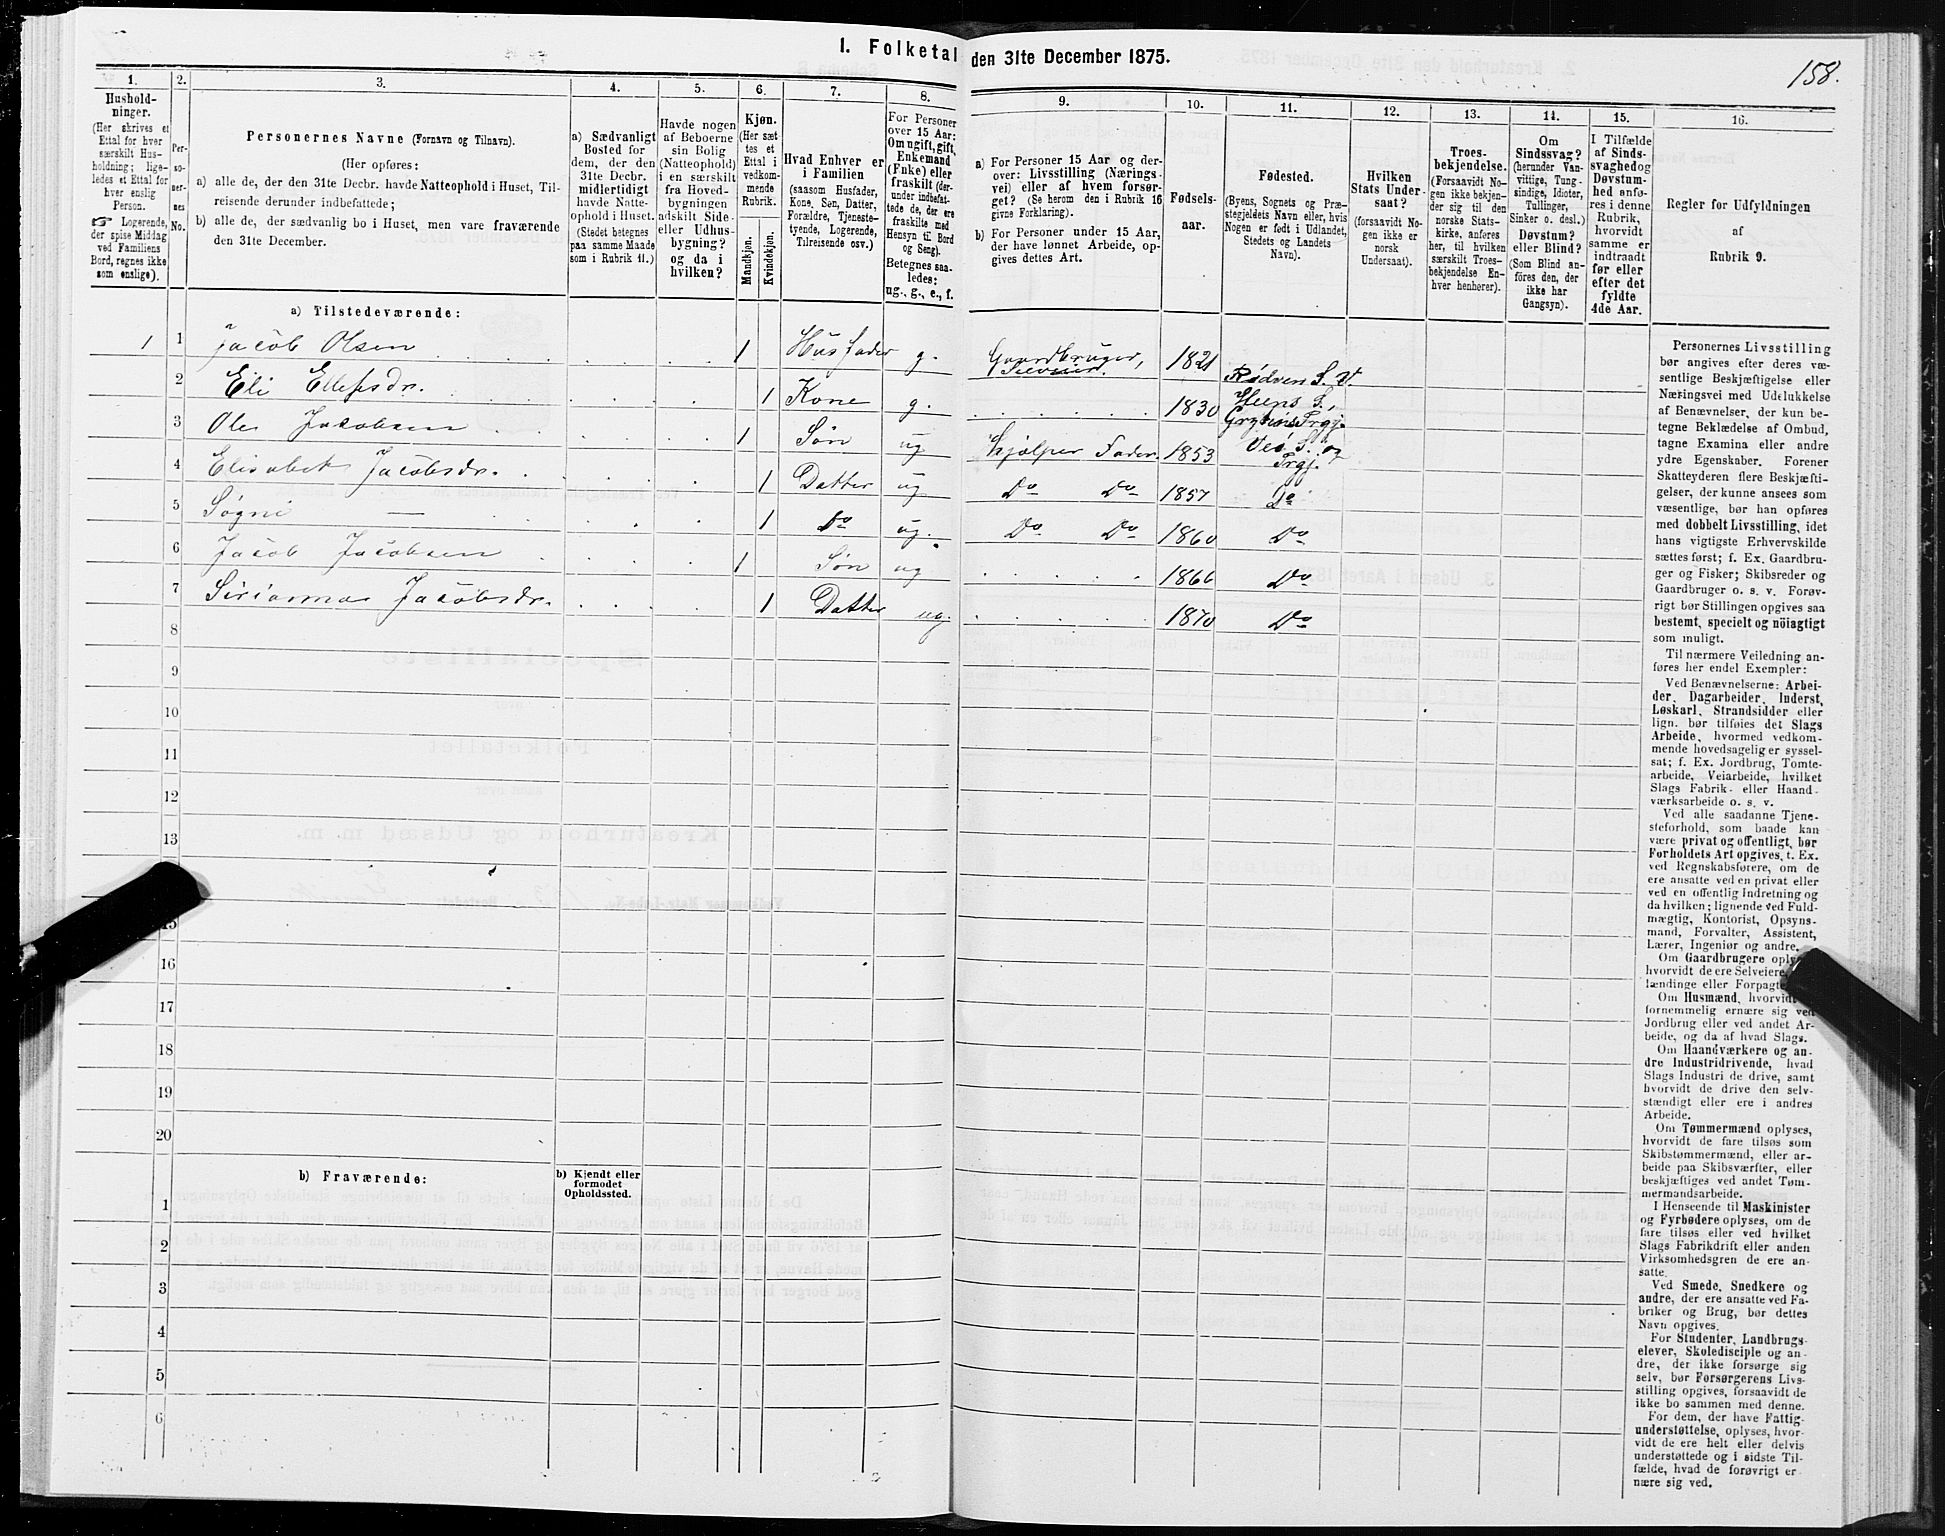 1. Folketal den 31te December 1875.
158.
1.
Hushold-
ninger.
(Her skrives et
Ettal for hver
særskilt Hus-
holdning; lige-
ledes et Ettal for
hver enslig
Person.
☞ Logerende,
der spise Middag
ved Familiens
Bord, regnes ikke
som enslige).
2.
Per-
so-
ner-
nes
No.
3.
Personernes Navne (Fornavn og Tilnavn).
(Her opføres:
a) alle de, der den 31te Decbr. havde Natteophold i Huset, Til-
reisende derunder indbefattede;
b) alle de, der sædvanlig bo i Huset, men vare fraværende
den 31te December.
4.
a) Sædvanligt
Bosted for
dem, der den
31te Decbr.
midlertidigt
havde Natte-
ophold i Huset.
(Stedet betegnes
paa samme Maade
som i Rubrik 11.)
5.
Havde nogen
af Beboerne
sin Bolig
(Natteophold)
i en særskilt
fra Hoved-
bygningen
adskilt Side-
eller Udhus-
bygning?
og da i
hvilken?
6.
Kjøn.
(Her sæt
tes et
Ettal i
vedkom-
mende
Rubrik.
Mandkjøn.
Kvindekjøn.
7.
Hvad Enhver er
i Familien
(saasom Husfader,
Kone, Søn, Datter,
Forældre, Tjeneste-
tyende, Logerende,
Tilreisende osv.)
8.
For Personer
over 15 Aar:
Om ugift, gift,
Enkemand
(Enke) eller
fraskilt (der-
under indbefat-
tede de, der ere
fraskilte med
Hensyn til Bord
og Seng).
Betegnes saa-
ledes:
ug., g., e., f.
9.
a) For Personer 15 Aar og der-
over: Livsstilling (Nærings-
vei) eller af hvem forsør-
get? (Se herom den i Rubrik 16
givne Forklaring).
b) For Personer under 15 Aar,
der have lønnet Arbeide, op-
gives dettes Art.
10.
Fødsels-
aar.
11.
Fødested.
(Byens, Sognets og Præ-
stegjeldets Navn eller, hvis
Nogen er født i Udlandet,
Stedets og Landets
Navn).
12.
Hvilken
Stats Under-
saat?
(forsaavidt No-
gen ikke er
norsk
Undersaat).
13.
Troes-
bekjendelse.
(Forsaavidt No-
gen ikke bekjen-
der sig til den
norske Stats-
kirke, anføres
her, til hvilken
særskilt Troes-
bekjendelse En-
hver henhører).
14.
Om
Sindssvag?
(herunder Van-
vittige, Tung-
sindige, Idioter,
Tullinger,
Sinker o. desl.)
Døvstum?
eller Blind?
(Som Blind an-
føres den, der
ikke har
Gangsyn).
15.
I Tilfælde
af Sinds-
svaghed og
Døvstum-
hed anfø-
res i denne
Rubrik,
hvorvidt
samme er
indtraadt
før eller
efter det
fyldte
4de Aar.
16.
Regler for Udfyldningen
af
Rubrik 9.
a) Tilstedeværende:
1 1 Jacob Olsen 1 Husfader g. Gaardbruger, Selveier. 1821 Rødven S. V.
2 Eli Ellefsdr. 1 Kone g. 1830 Heens S., Grytens Prgj.
3 Ole Jacobsen 1 Søn ug Hjælper Fader 1853 Veø S. og Prgj.
4 Elisabet Jacobsdr. 1 Datter ug Do Do 1857 Do
5 Søgni — 1 Do ug. Do Do 1860 Do
6 Jacob Jacobsen 1 Søn ug 1866 Do
7 Sirianna Jacobsdr. 1 Datter ug. 1870 Do
8
9
10
11
12
13
15
16
17
18
19
20
b) Fraværende:
b) Kjendt eller
formodet
Opholdssted.
1
2
3
4
5
6
Personernes Livsstilling
bør angives efter deres væ-
sentlige Beskjæftigelse eller
Næringsvei med Udelukkelse
af Benævnelser, der kun be-
tegne Beklædelse af Ombud,
tagne Examina eller andre
ydre Egenskaber. Forener
Skatteyderen flere Beskjæfti-
gelser, der kunne ansees som
væsentlige, bør han opføres
med dobbelt Livsstilling, idet
hans vigtigste Erhvervskilde
sættes først; f. Ex. Gaardbru-
ger og Fisker; Skibsreder og
Gaardbruger o. s. v. Forøv-
rigt bør Stillingen opgives saa
bestemt, specielt og nöiagtigt
som muligt.
Til nærmere Veiledning an-
føres her endel Exempler:
Ved Benævnelserne: Arbei-
der, Dagarbeider, Inderst,
Løskarl, Strandsidder eller
lign. bør tilføies det Slags
Arbeide, hvormed vedkom-
mende hovedsagelig er syssel-
sat; f. Ex. Jordbrug, Tomte-
arbeide, Veiarbeide, hvilket
Slags Fabrik- eller Haand-
værksarbeide o. s. v.
Ved alle saadanne Tjene-
steforhold, som baade kan
være privat og offentligt, bør
Forholdets Art opgives, t. Ex.
ved Regnskabsførere, om de
ere ansatte ved en privat eller
ved en offentlig Indretning og
da hvilken; lignende ved Fuld-
mægtig, Kontorist, Opsyns-
mand, Forvalter, Assistent,
Lærer, Ingeniør og andre.
Om Gaardbrugere oplyses
hvorvidt de ere Selveiere,
lændinge eller Forpagtere.
Om Husmænd, hvorvidt
fornemmelig ernære sig ved
Jordbrug eller ved andet Ar-
beide, og da af hvad Slags.
Om Haandværkere og an-
dre Industridrivende, hvad
Slags Industri de drive, samt
hvorvidt de drive den selv-
stændigt eller ere i andres
Arbeide.
Om Tømmermænd oplyses,
hvorvidt de fare tilsøs som
Skibstømmermænd, eller ar-
beide paa Skibsværfter, eller
beskjæftiges ved andet Tøm-
mermandsarbeide.
I Henseende til Maskinister
og Fyrbødere oplyses, om de
fare tilsøs eller ved hvilket
Slags Fabrikdrift eller anden
Virksomhedsgren de ere an-
satte.
Ved Smede, Snedkere og
andre, der ere ansatte ved Fa-
briker og Brug, bør dettes
Navn opgives.
For Studenter, Landbrugs-
elever, Skoledisciple og an-
dre, der ikke forsørge sig
selv, bør Forsørgerens Livs-
stilling opgives, forsaavidt de
ikke bo sammen med denne.
For dem, der have Fattig-
understøttelse, oplyses, hvor-
vidt de ere helt eller delvis
understøttede og i sidste Til-
fælde, hvad de forøvrigt er-
nære sig ved.